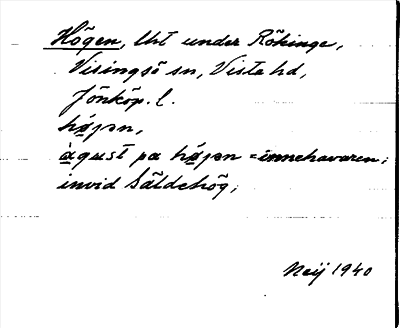 Högen, lht under Rökinge,
Visingsö sn, Vista hd,
Jönköp. l.
hø̀jən,
àgust pa hø̀jən = innehavaren;
invid Säldehög;
Neij 1940